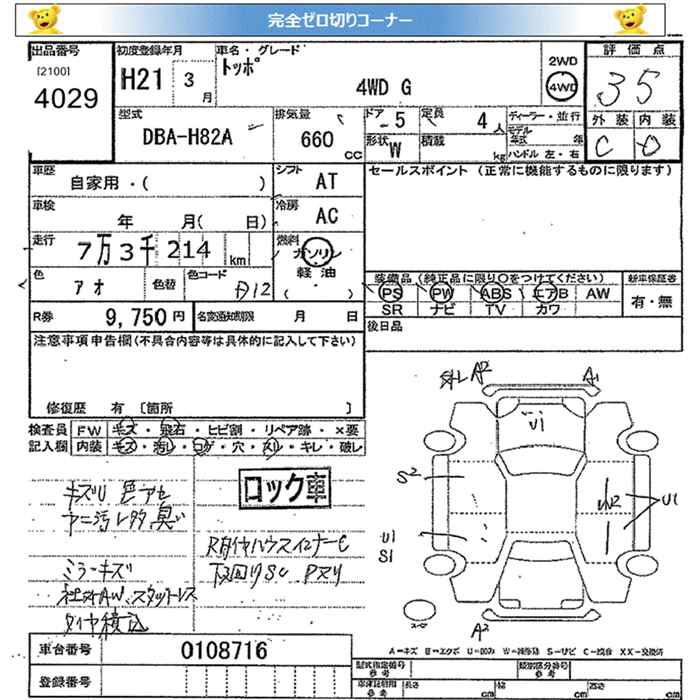 完全ゼロ切りコーナー
出品番号 初度登録年月 車名・グレード 2WD 評価点
[2100] H21 3 月 トッポ 4WD
4029 4WD G 35
型式 排気量 ドア 定員 ディーラー・並行 外装 内装
DBA-H82A 660 CC 5 4人 モデル年式 年 C D
形状 W 積載 kg ハンドル 左・右
車歴 シフト セールスポイント (正常に機能するものに限ります)
自家用・( ) AT
車検 冷房
年 月( 日) AC
走行 7万3千214 km 燃料 ガソリン
軽油
( )
色 色替 色コード 装備品(純正品に限り○をつけてください) 新車保証書
アオ D12 PS PW ABS エアB AW 有・無
SR ナビ TV カワ
R券 9,750円 名変通知期限 月 日 後日品
注意事項申告欄(不具合内容等は具体的に記入して下さい)
修復歴 有 [箇所 ]
検査員 FW キズ・飛石・ヒビ割・リペア跡・×要
記入欄 内装 キズ・汚レ・コゲ・穴・スレ・キレ・破レ
外レ A2 A1
U1
S2 W2 U1
U1
S1
A2
ロック車
キズU 色アセ
ヤニ汚レ多 臭い
R前タイヤハウスインナーC
ミラーキズ 下回りSC Pヌリ
社外AW、スタットレス
タイヤ積込
A=キズ E=エクボ U=凹み W=補修跡 S=サビ C=腐食 XX=交換済
車台番号 0108716
登録番号
型式指定番号 類別区分番号
参考 参考
長さ cm 幅 cm 高さ cm